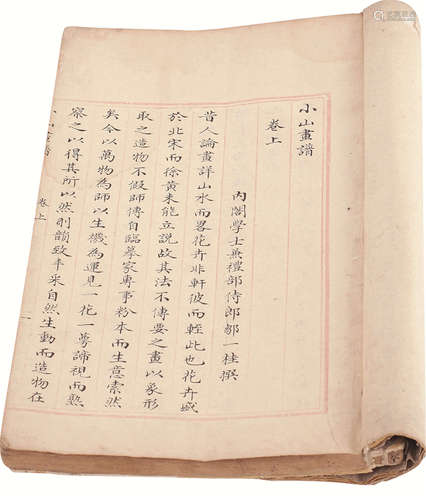 小山畫譜
卷上
內閣學士兼禮部侍郎鄒一桂撰
昔人論畫詳山水而畧花卉非軒彼而輊此也花卉盛
於北宋而徐黃未能立說故其法不傳要之畫以象形
取之造物不假師傳自臨摹家專事粉本而生意索然
矣今以萬物為師以生機為運見一花一萼諦視而熟
察之以得其所以然則韻致丰采自然生動而造物在
小山畫譜
卷上
一